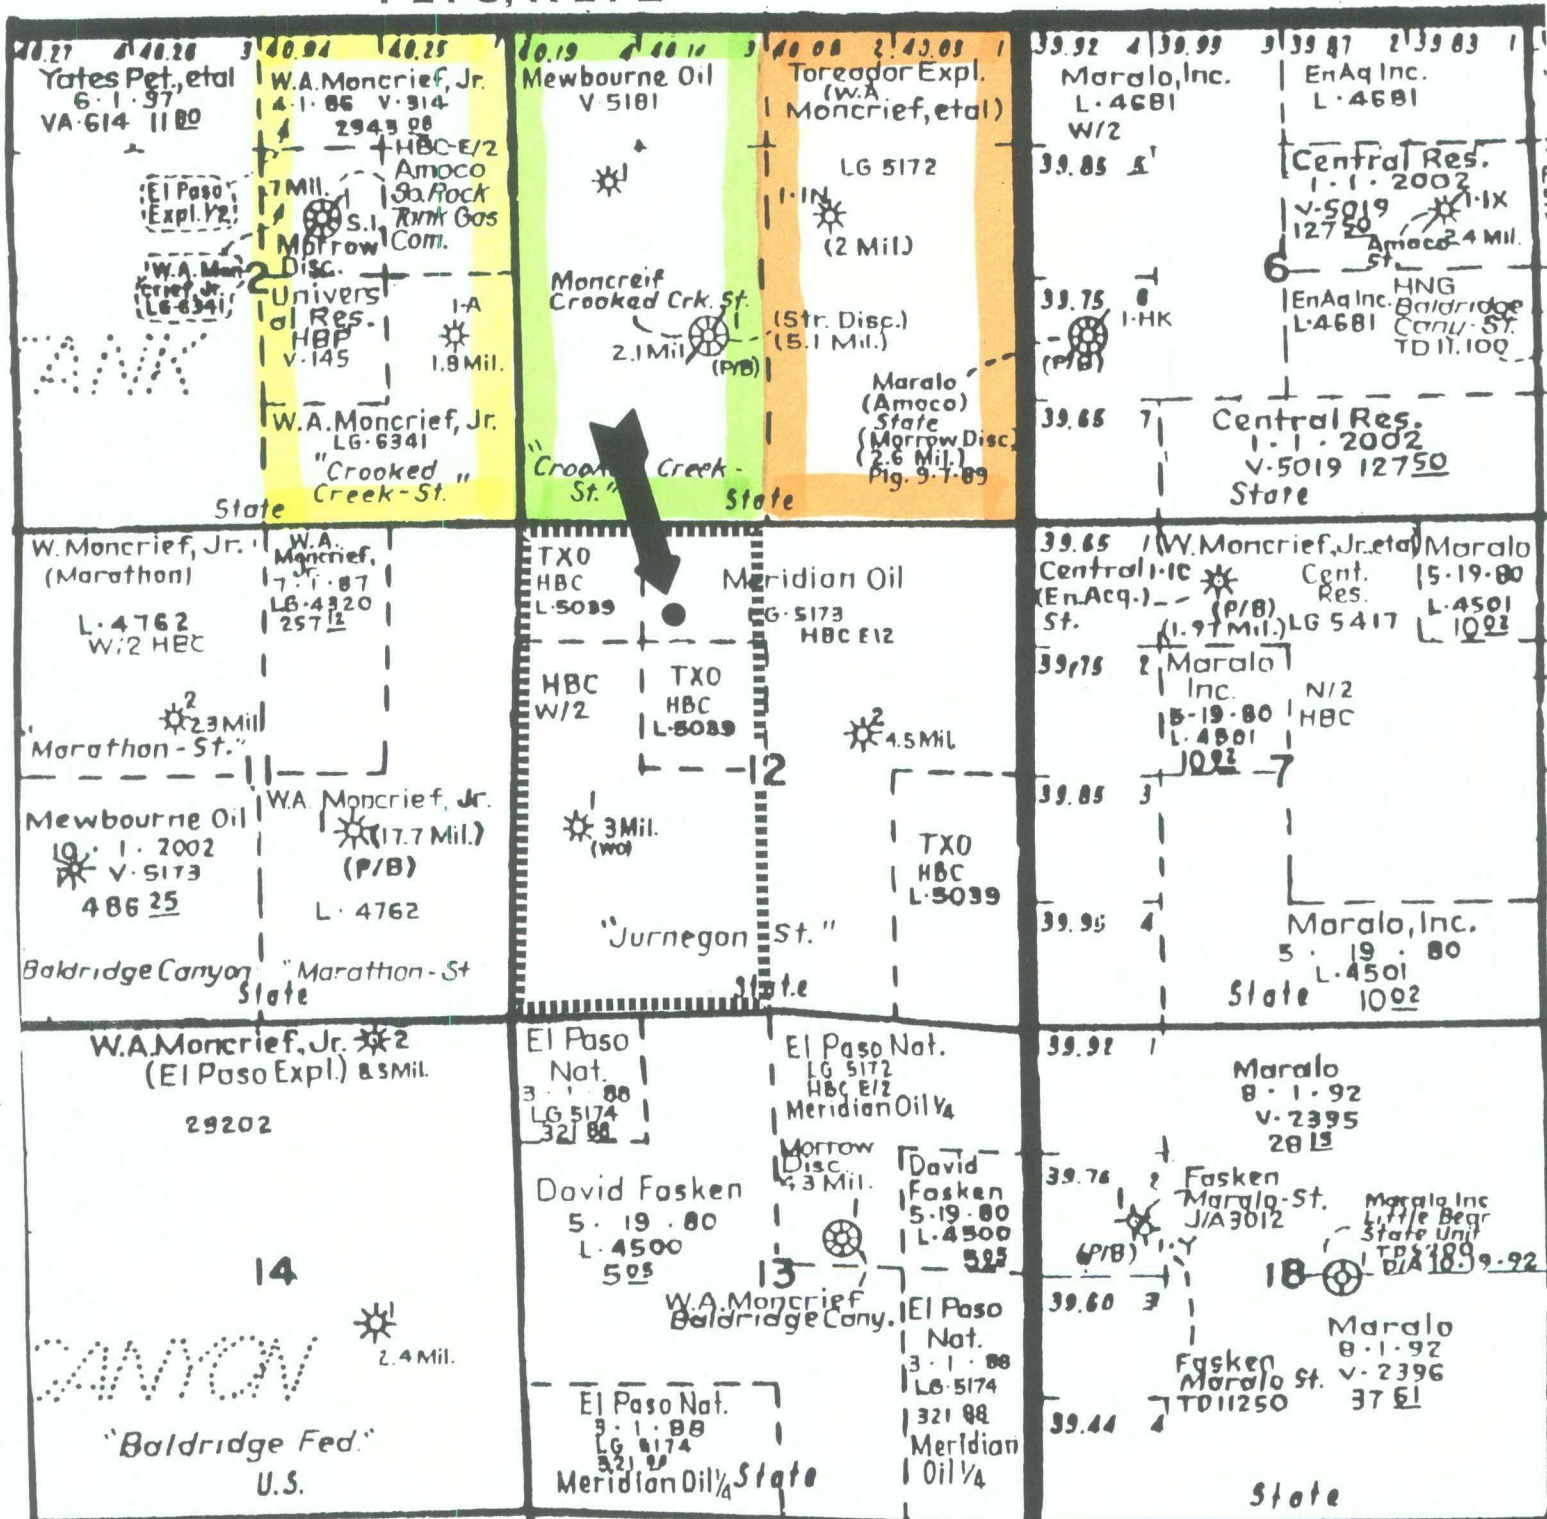 40.27 4 40.26 3 40.94 40.25
40.19 4 40.10 3 40.08 2 40.09 1
39.92 4 39.99 3 39.87 2 39.83 1
Yates Pet., etal
6·1·97
VA·614 11 80
El Paso
Expl. 1/2
W.A. Mon
crief, Jr.
LG·6341
2
W.A. Moncrief, Jr.
4·1·86 V·314
2943 08
HBC-E/2
Amoco
So. Rock
Tank Gas
Com.
.7 Mil.
S.I.
Morrow
Disc.
Univers
al Res.
HBP
V·145
1-A
1.9 Mil.
W.A. Moncrief, Jr.
LG·6341
"Crooked
Creek-St."
State
TANK
Mewbourne Oil
V·5181
1
Moncreif
Crooked Crk. St.
1
2.1 Mil
(P/B)
(Str. Disc.)
(5.1 Mil.)
Creek-
St."
State
Toreador Expl.
(W.A
Moncrief, etal)
LG 5172
1-IN
(2 Mil.)
Maralo
(Amoco)
State
(Morrow Disc.
(2.6 Mil.)
Plg. 9·7·89
Maralo, Inc.
L·4681
W/2
39.85 5
39.75 6
1-HK
(P/B)
39.65 7
EnAq Inc.
L·4681
Central Res.
1·1·2002
V·5019
127 50
1-IX
Amoco 2.4 Mil.
St.
6
EnAq Inc.
L·4681
HNG
Baldridge
Cany-St.
TD 11,100
Central Res.
1·1·2002
V·5019 127 50
State
W. Moncrief, Jr.
(Marathon)
L·4762
W/2 HBC
2
2.3 Mil
"Marathon-St."
W.A.
Moncrief,
Jr.
7·1·87
LG·4320
257 12
11
Mewbourne Oil
10·1·2002
V·5173
486 25
Baldridge Canyon
State
W.A. Moncrief, Jr.
1
(17.7 Mil.)
(P/B)
L·4762
"Marathon-St
TXO
HBC
L·5039
Meridian Oil
LG·5173
HBC E12
HBC
W/2
TXO
HBC
L·5039
2
4.5 Mil.
12
1
3 Mil.
(WO)
TXO
HBC
L·5039
"Jurnegon St."
State
39.65 1
Central 1-IC
(En.Acq.)
St.
W. Moncrief, Jr. etal
Cent.
Res.
(P/B)
(1.97 Mil.) LG 5417
Maralo
5·19·80
L·4501
10 02
39.75 2
Maralo
Inc.
5·19·80
L·4501
10 02
N/2
HBC
7
39.85 3
39.95 4
Maralo, Inc.
5·19·80
L·4501
State 10 02
W.A. Moncrief, Jr. 2
(El Paso Expl.) 8.5 Mil.
29202
14
1
2.4 Mil.
CANYON
"Baldridge Fed."
U.S.
El Paso
Nat.
3·1·88
LG 5174
321 88
David Fasken
5·19·80
L·4500
5 05
El Paso Nat.
LG 5172
HBC E/2
Meridian Oil 1/4
Morrow
Disc.
David
Fasken
5·19·80
L·4500
5 05
13
W.A. Moncrief
Baldridge Cany.
El Paso
Nat.
3·1·88
LG·5174
321 88
Meridian
Oil 1/4
El Paso Nat.
3·1·88
LG 5174
Meridian Oil 1/4 State
39.92 1
Maralo
8·1·92
V·2395
28 15
39.76 2
Fasken
Maralo-St.
J/A 3012
1-Y
(P/B)
Maralo Inc
Little Bear
State Unit
D/A 10·19·92
18
39.60 3
Maralo
8·1·92
V·2396
37 61
Fasken
Maralo St.
TD 11250
39.44 4
State